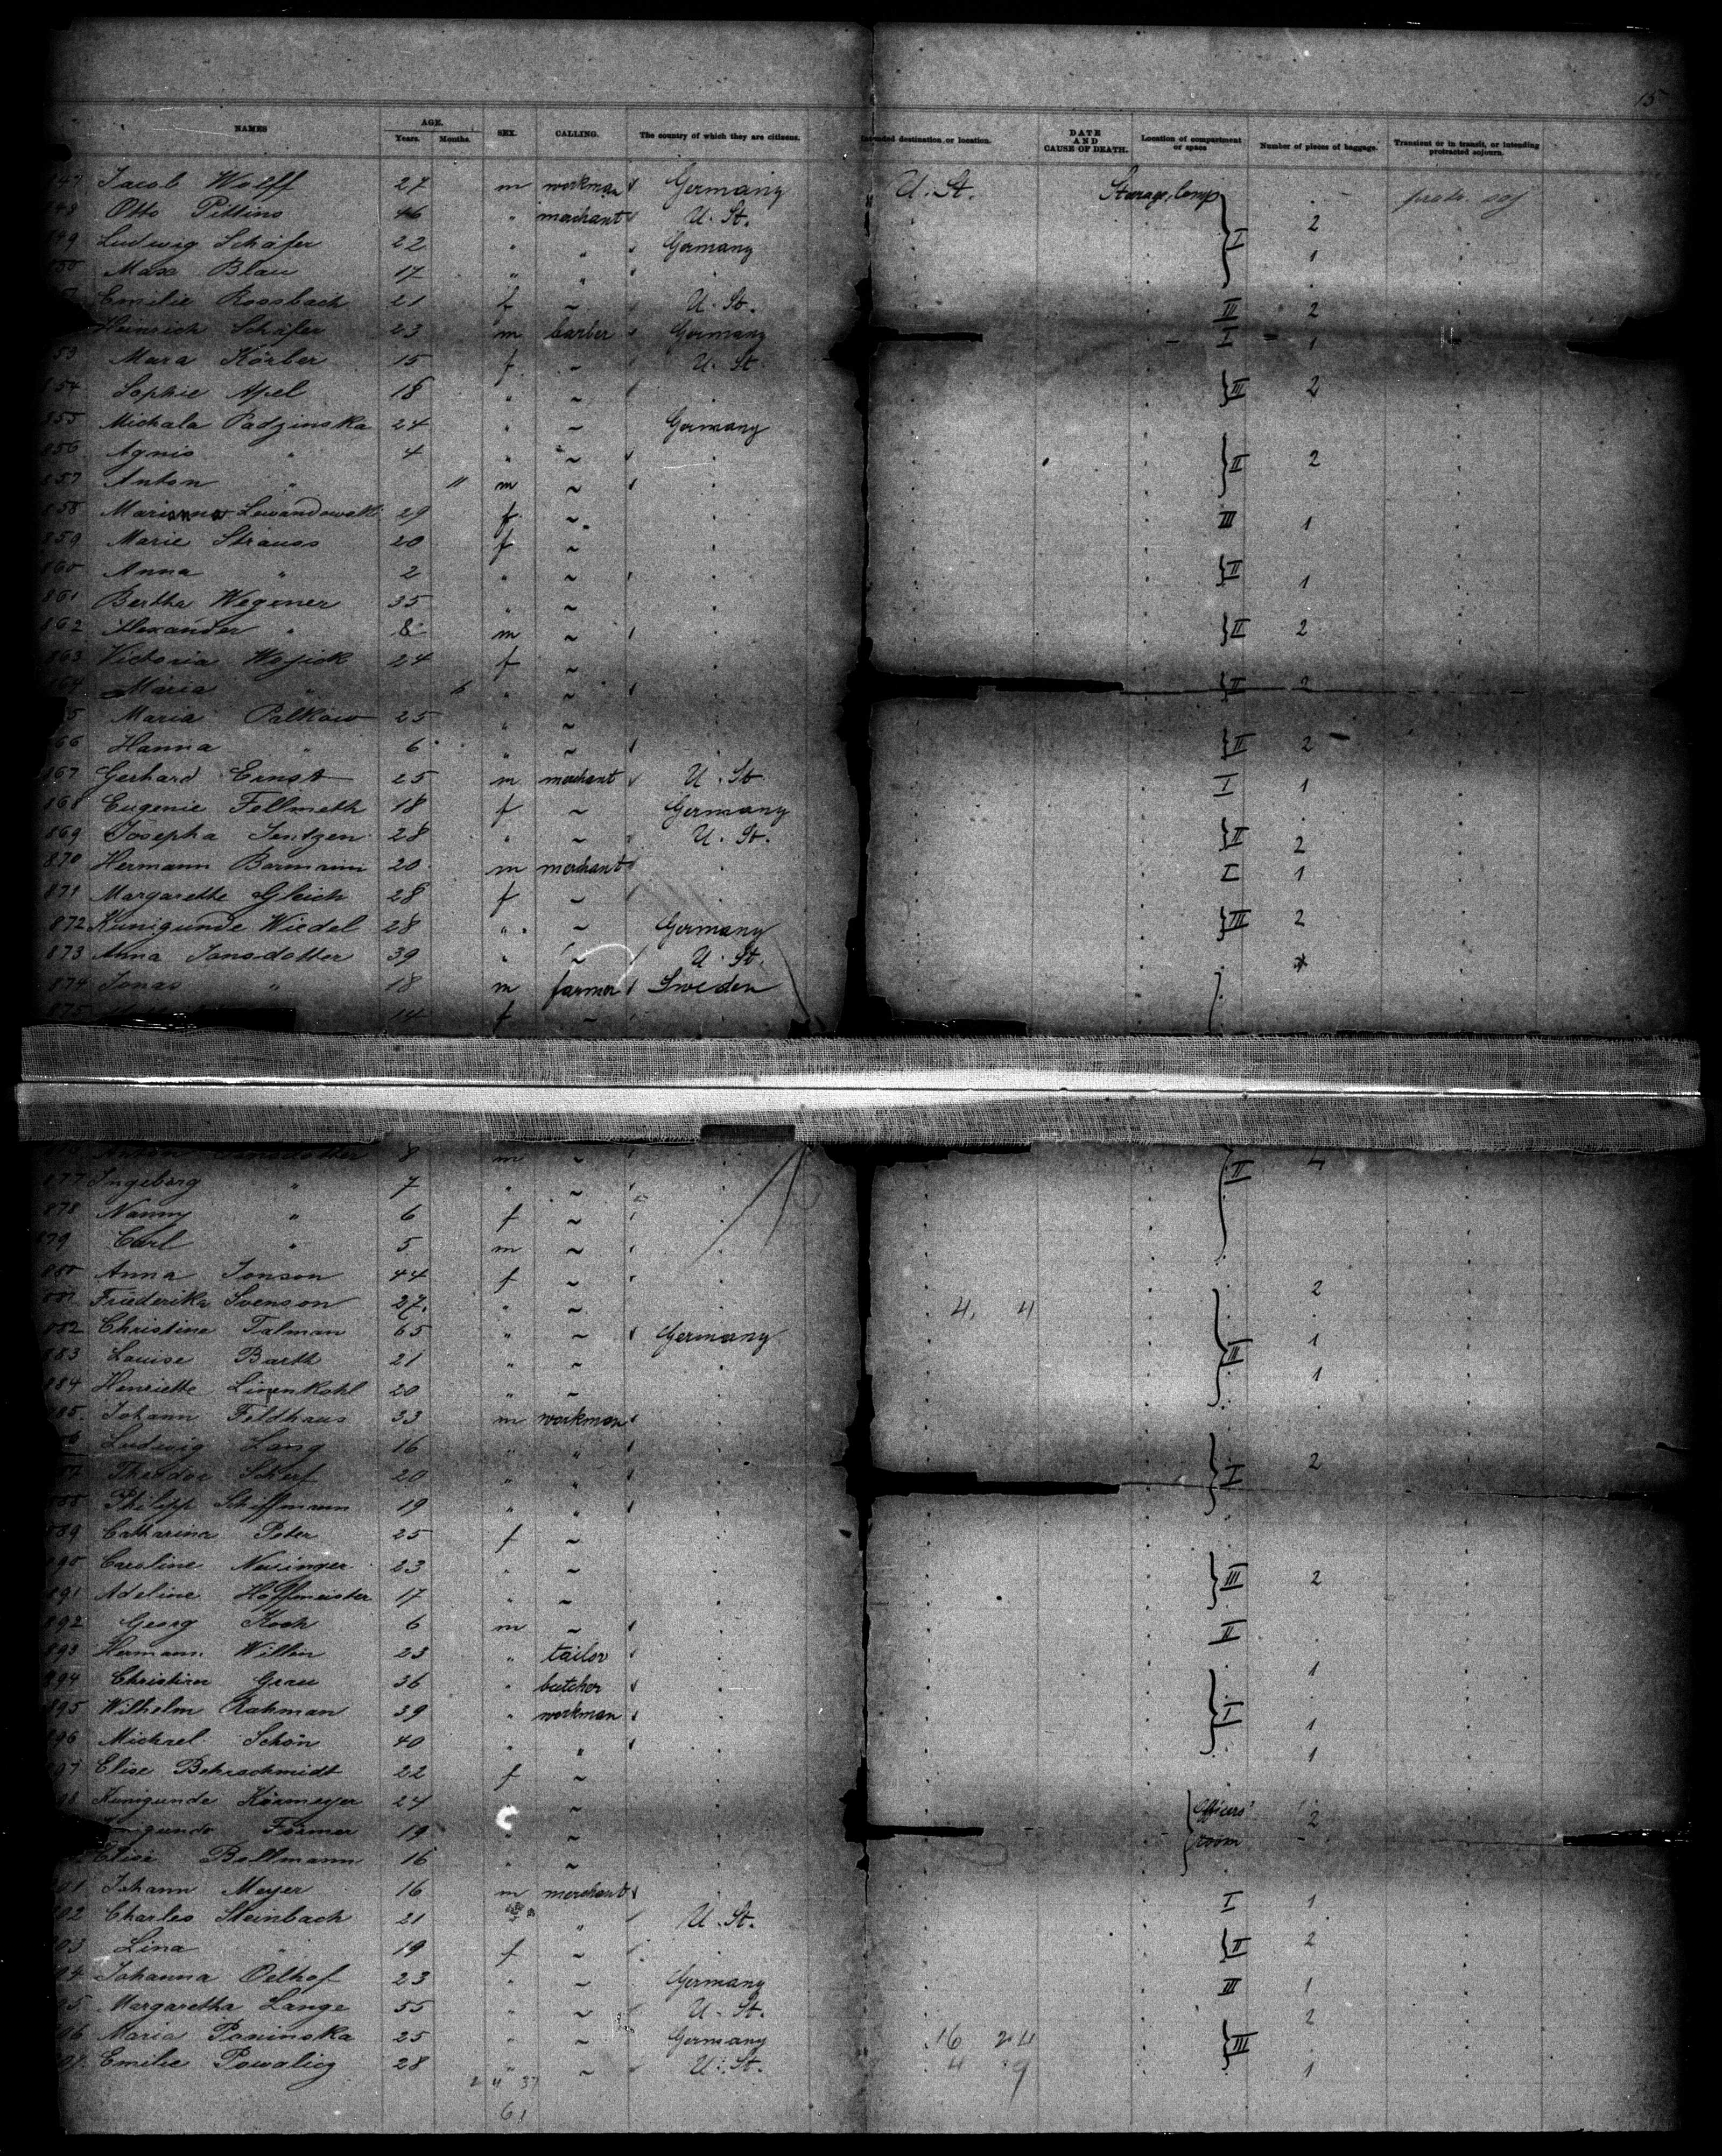 15
NAMES AGE. Years. Months. SEX. CALLING. The country of which they are citizens. Intended destination or location. DATE AND CAUSE OF DEATH. Location of compartment or space Number of pieces of baggage. Transient or in transit, or intending protracted sojourn.
847 Jacob Wolff 27 m workman Germany U. St. Steerage, Comp protr. soj
848 Otto Pittins 46 " merchant U. St. 2
849 Ludwig Schäfer 22 " " Germany I 1
850 Max Blau 17 " "
Emilie Rossbach 21 f ~ U. St. III 2
Heinrich Schäfer 23 m barber Germany I 1
853 Mara Körber 15 f ~ U. St.
854 Sophie Apel 18 " ~ III 2
855 Michala Padzinska 24 " ~ Germany
856 Agnis " 4 " ~ II 2
857 Anton " 11 m ~
858 Marianna Lewandowski 29 f ~ III 1
859 Marie Strauss 20 f ~
860 Anna " 2 " ~ II 1
861 Bertha Wegener 35 " ~
862 Alexander " 8 m ~ II 2
863 Victoria Wojick 24 f ~
864 Maria " 6 " ~ II 2
865 Maria Palkow 25 " ~
866 Hanna " 6 " ~ II 2
867 Gerhard Ernst 25 m merchant U. St. I 1
868 Eugenie Fellmeth 18 f ~ Germany
869 Josepha Jentzen 28 " ~ U. St. II 2
870 Hermann 20 m merchant I 1
871 Margarethe Gleich 28 f ~
872 Kunigunde Wiedel 28 " ~ Germany III 2
873 Anna Jonsdotter 39 " ~ U. St.
874 Jonas " 18 m farmer Sweden
875 14 f ~
8 m ~ II
877 Ingeborg " 7 " ~
878 Nanny " 6 f ~
879 Carl " 5 m ~
880 Anna Jonson 44 f ~ 2
881 Friederika Svenson 27 " ~ 4 4
882 Christine Talman 65 " ~ Germany 1
883 Louise Barth 21 " ~ III 1
884 Henriette Linenkohl 20 " ~
885 Johann Feldhaus 33 m workman
886 Ludwig Lang 16 " " 2
887 Theodor Scherf 20 " " I
888 Philipp Schiffmann 19 " "
889 Catharina Peter 25 f ~
890 Caroline Neusinger 23 " ~ III 2
891 Adeline Hoffmeister 17 " ~
892 Georg Koch 6 m ~ II
893 Hermann Willin 23 " tailor 1
894 Christian Grau 36 " butcher
895 Wilhelm Rahman 39 " workman I 1
896 Michael Schön 40 " " 1
897 Elise Behrschmidt 22 f ~
898 Kunigunde Körmeyer 24 ~ Officers' 2
Kunigunde Förmer 19 " ~ room
Elise Bellmann 16 " ~
901 Johann Meyer 16 m merchant I 1
902 Charles Steinbach 21 " U. St.
903 Lina " 19 f ~ II 2
904 Johanna Oelhof 23 " ~ Germany III 1
905 Margaretha Lange 55 " ~ U. St. 2
906 Maria Paninska 25 " ~ Germany 16 24 III
907 Emilie Powalicz 28 " ~ U. St. 4 9 1
2 4 37
61